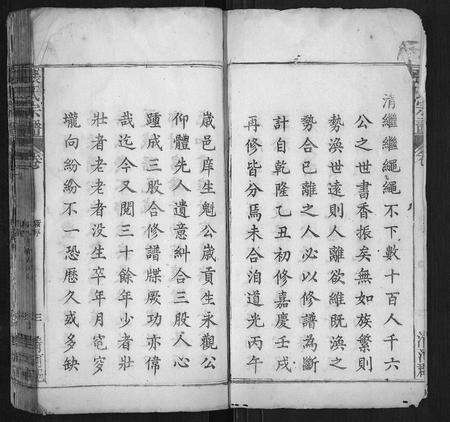 清繼繼繩繩不下數十百人千六
公之世書香振矣無如族繁則
勢渙世遠則人離欲維既渙之
勢合已離之人必以修譜為斷
計自乾隆乙丑初修嘉慶壬戌
再修皆分焉未合洎道光丙午
嵗邑庠生魁公嵗貢生永觀公
仰體先人遺意糾合三股人心
踵成三股合修譜牒厥功亦偉
哉迄今又閱三十餘年少者壯
壯者老老者没生卒年月窀穸
壠向紛紛不一恐歷久或多缺
氏宗譜
卷
清河郡